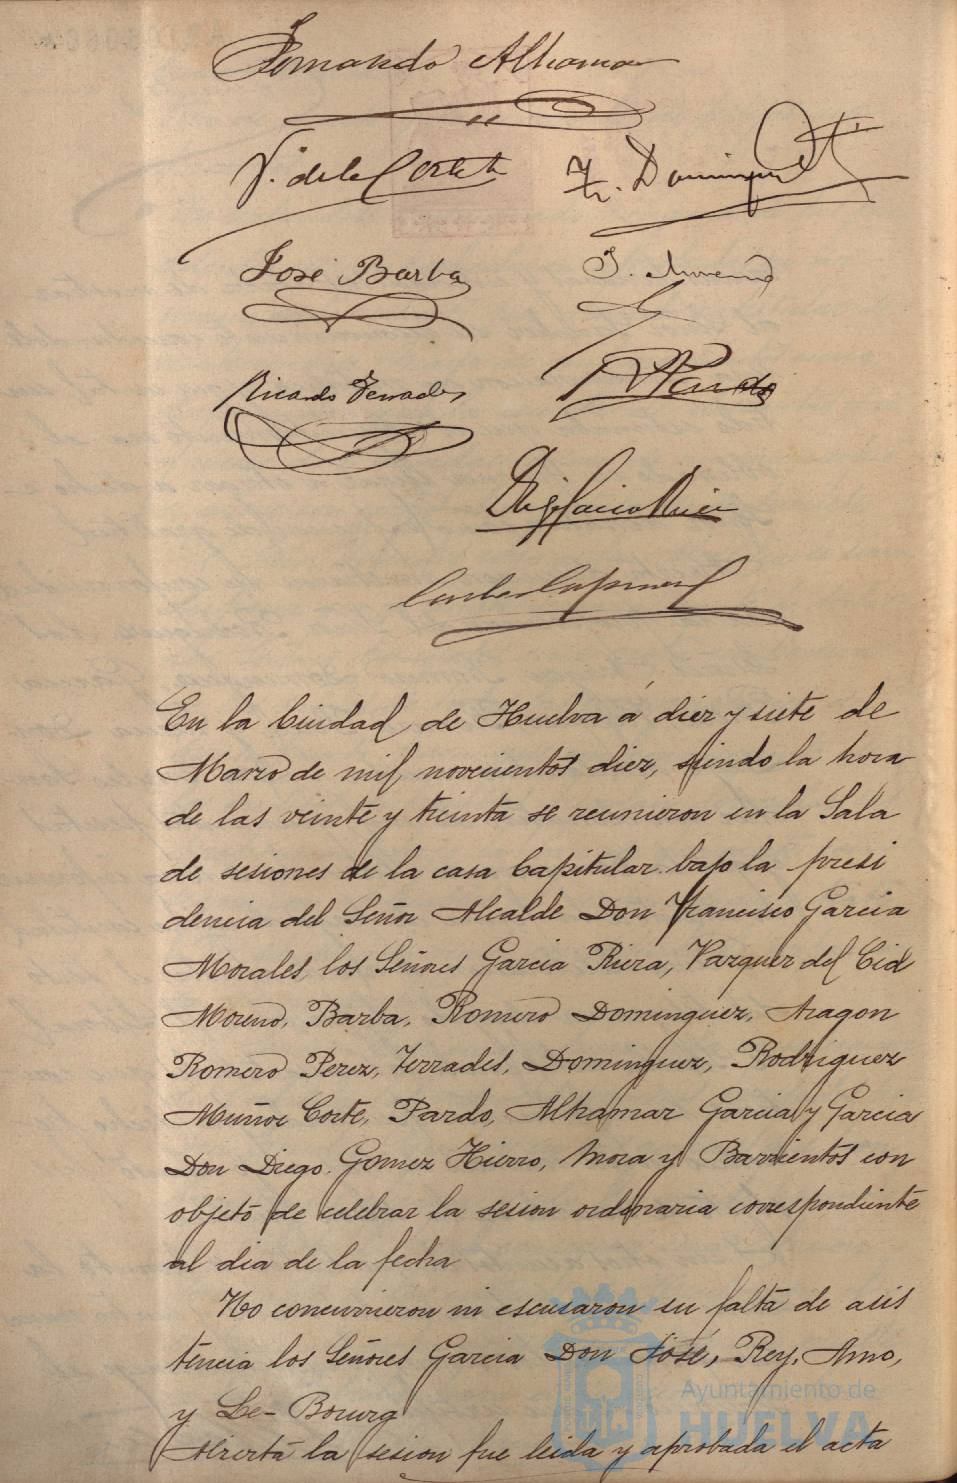 Fernando Alhamar
V. de la Corte
Fr. Dominguez
José Barba
J. Moreno
Ricardo Terrades
Pardo
Diego Garcia
En la Ciudad de Huelva á diez y siete de
Marzo de mil novecientos diez, siendo la hora
de las veinte y treinta se reunieron en la Sala
de sesiones de la casa Capitular bajo la presi
dencia del Señor Alcalde Don Francisco Garcia
Morales, los Señores Garcia Riera, Vazquez del Cid
Moreno, Barba, Romero Dominguez, Aragon
Romero Perez, Terrades, Dominguez, Rodriguez
Muñoz Corte, Pardo, Alhamar Garcia y Garcia
Don Diego. Gomez Hierro, Mora y Barrientos con
objeto de celebrar la sesion ordinaria correspondiente
al dia de la fecha
No concurrieron ni escusaron su falta de asis
tencia los Señores Garcia Don José, Rey, Amo,
y Le-Bourg
Abierta la sesion fue leida y aprobada el acta
Ayuntamiento de
HUELVA